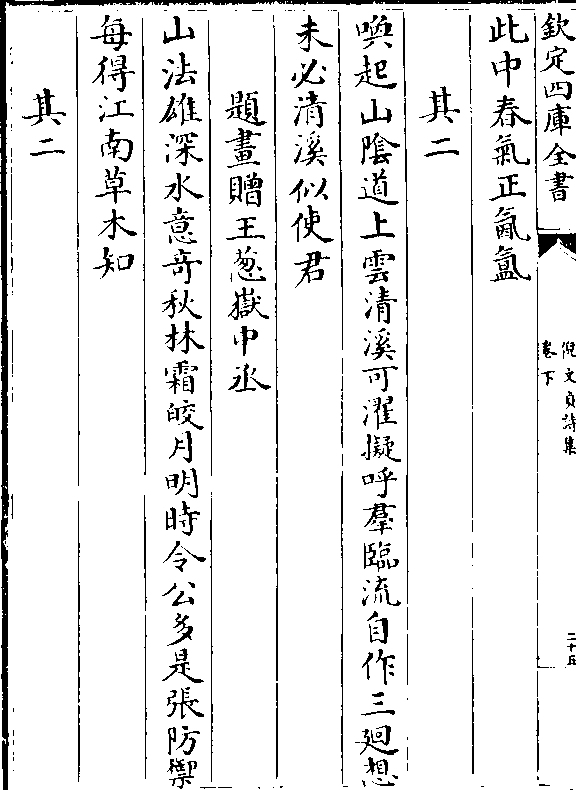 欽定四庫全書
倪文貞詩集
卷下
二十五
此中春氣正氤氳
其二
喚起山陰道上雲清溪可濯擬呼羣臨流自作三廻想
未必清溪似使君
題畫贈王葱嶽中丞
山法雄深水意奇秋林霜皎月明時令公多是張防禦
每得江南草木知
其二